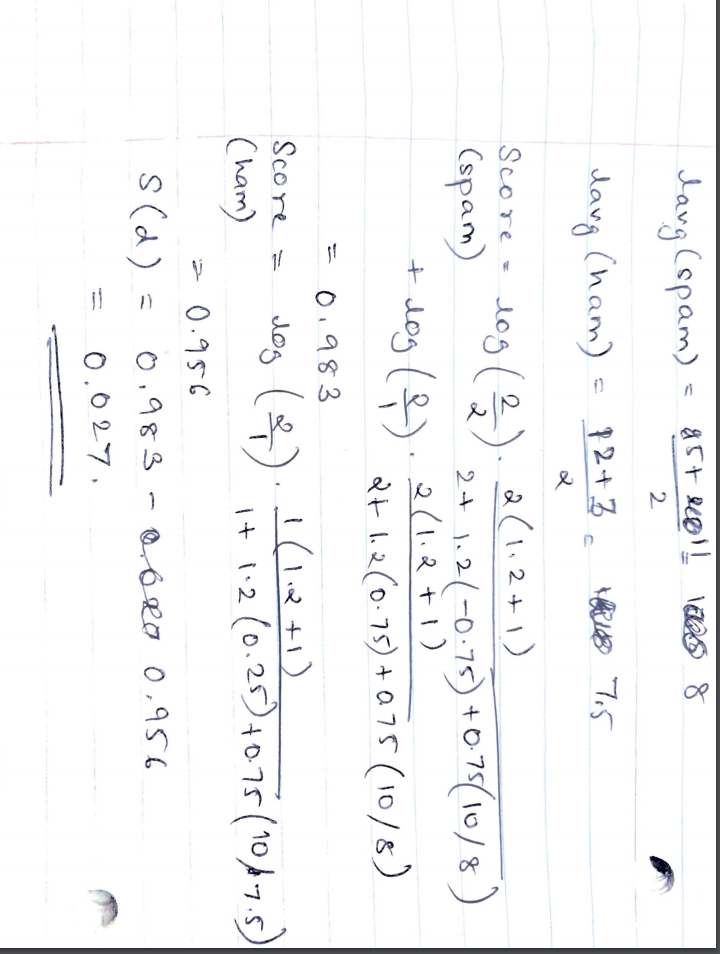 lavg (spam) = 5 + 11 / 2 = 8
lavg (ham) = 12 + 3 / 2 = 7.5
Score (spam) = log (2/2) . 2(1.2+1) / 2 + 1.2(-0.75) + 0.75(10/8)
+ log (2/1) . 2(1.2+1) / 2 + 1.2(0.75) + 0.75(10/8)
= 0.983
Score (ham) = log (2/1) . 1(1.2+1) / 1 + 1.2(0.25) + 0.75(10/7.5)
= 0.956
S(d) = 0.983 - 0.956
= 0.027.